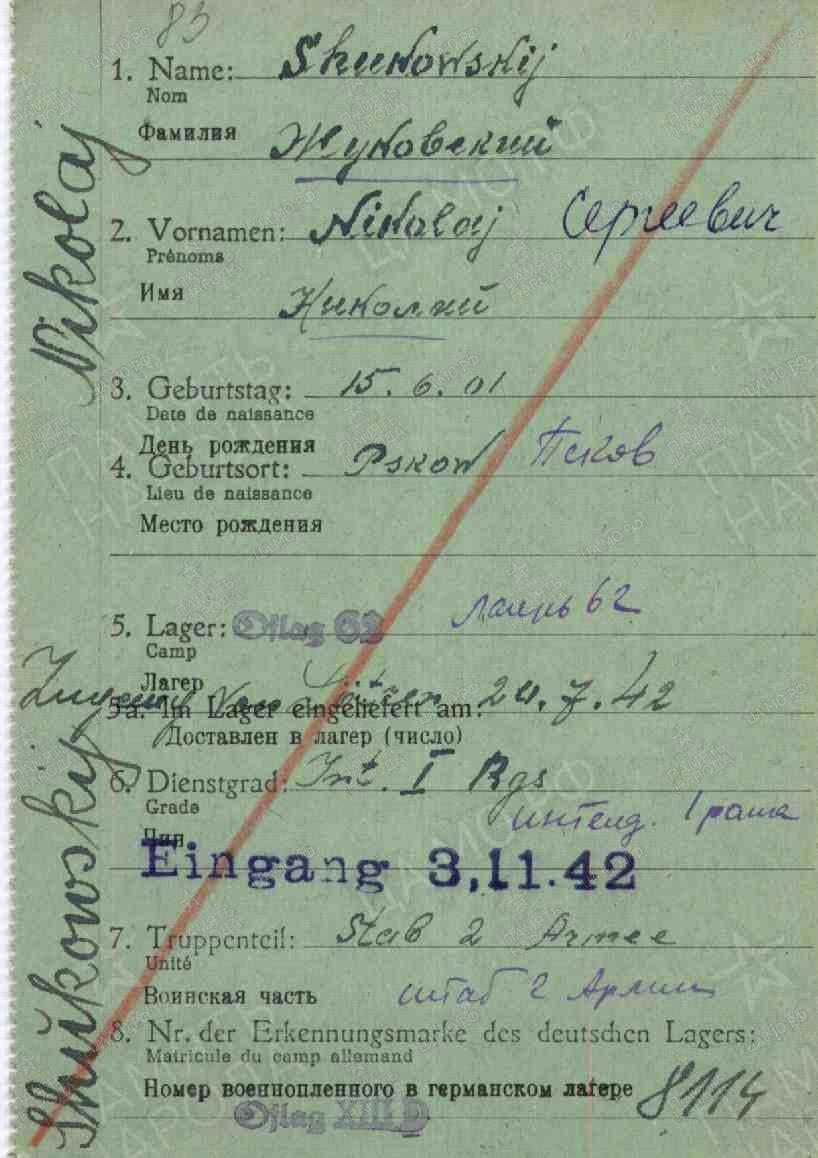 83
1. Name: Shukowskij
Nom
Фамилия Жуковский
2. Vornamen: Nikolaj Сергеевич
Prénoms
Имя Николай
3. Geburtstag: 15.6.01
Date de naissance
День рождения
4. Geburtsort: Pskow Псков
Lieu de naissance
Место рождения
5. Lager: Oflag 62 лагерь 62
Camp
Лагерь
5a. Im Lager eingeliefert am: 24.7.42
Доставлен в лагерь (число)
6. Dienstgrad: Int. I Rgs
Grade интенд. 1 ранга
Чин
Eingang 3.11.42
7. Truppenteil: Stab 2 Armee
Unité
Воинская часть штаб 2 Армии
8. Nr. der Erkennungsmarke des deutschen Lagers:
Matricule du camp allemand
Номер военнопленного в германском лагере 8114
Oflag XIII D
Shukowskij Nikolaj